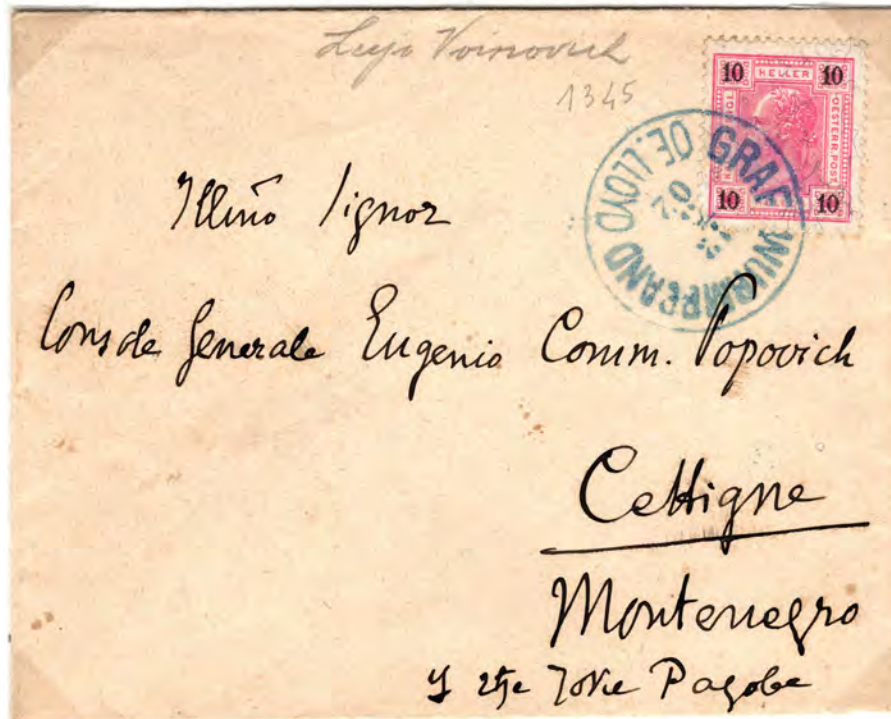 Lujo Voinovich
1345
10 HELLER 10
OESTERR. POST
10 10
GRAF WURMBRAND
OE. LLOYD
Illmo Signor
Console Generale Eugenio Comm. Popovich
Cettigne
Montenegro